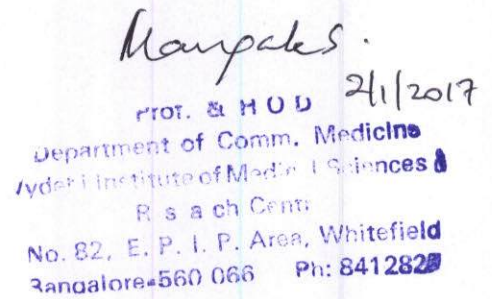 Mangala S.
2/1/2017
Prof. & H O D
Department of Comm. Medicine
Vydehi Institute of Medical Sciences &
R s a ch Centr
No. 82, E. P. I. P. Area, Whitefield
Bangalore-560 066 Ph: 841282